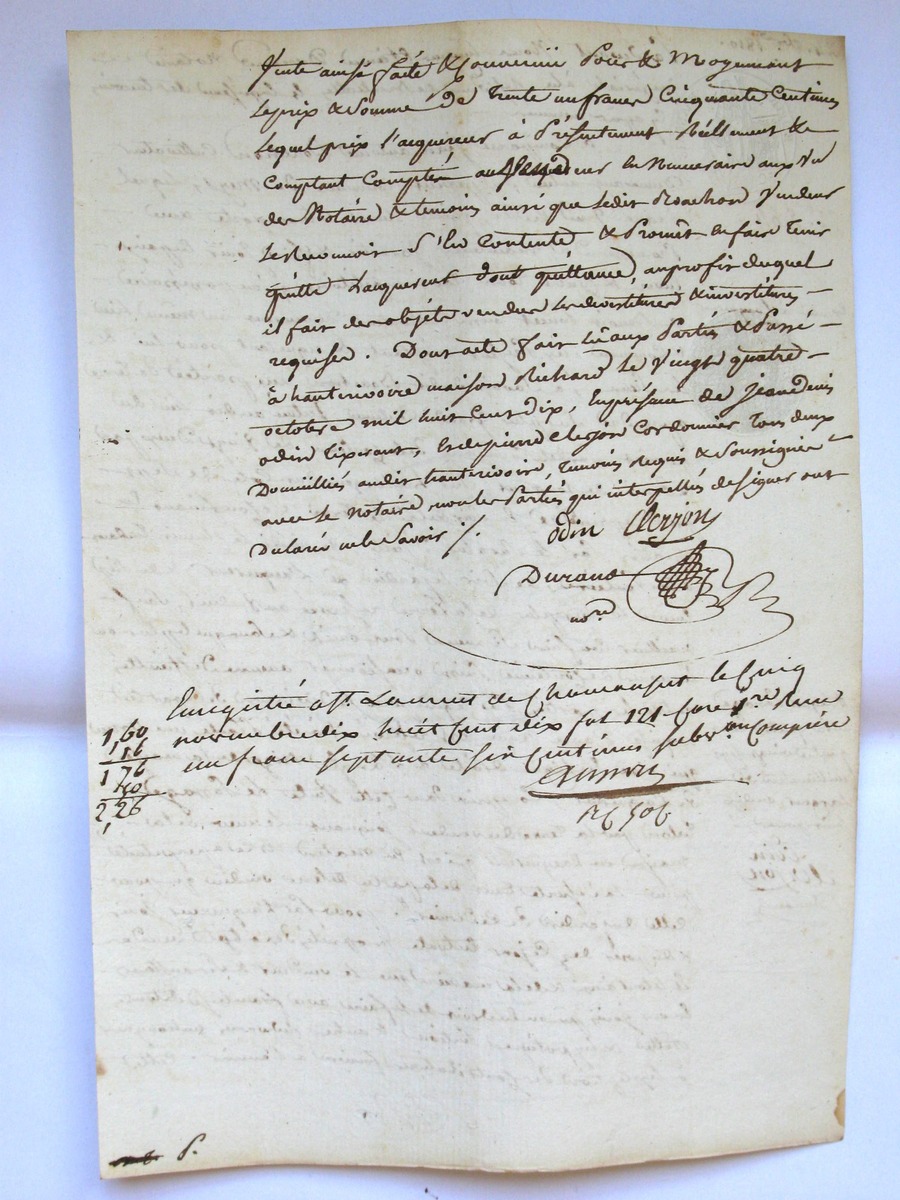 Vente ainsi faite & Convenüe Pour & Moyennant
Le prix & Somme De Trente un francs Cinquante Centimes
Lequel prix l'acquereur à Présentement Réellement &
Comptant Compté au Vendeur en Numeraire aux vu
des Notaire & temoins ainsi que ledit Vendeur
Le Reconnoit S'en Contente & Promet en faire Tenir
Quitte L'acquereur dont quittance, au profit duquel
il fait des objets vendus les devestitures & investitures
requises. Dont acte fait Lu aux Parties & Passé
à hauterivoire maison Richard Le Vingt quatre
octobre mil huit Cent dix, En présence de jean denis
odin Tixerant, & de pierre Clerjon Cordonnier Tous deux
Domiciliés audit hauterivoire, Temoins Requis & Soussignés
avec le Notaire, non les Parties qui interpellés de signer ont
Declaré ne le Savoir /.
odin Clerjon
Durand
no.re
Enregistré à St. Laurent de Chamousset le Cinq
novembre dix huit Cent dix fol 121 Case 1re. Reçu
un franc septante six Centimes subv.on Comprise
1,60
,16
1 76
50
2,26
P.